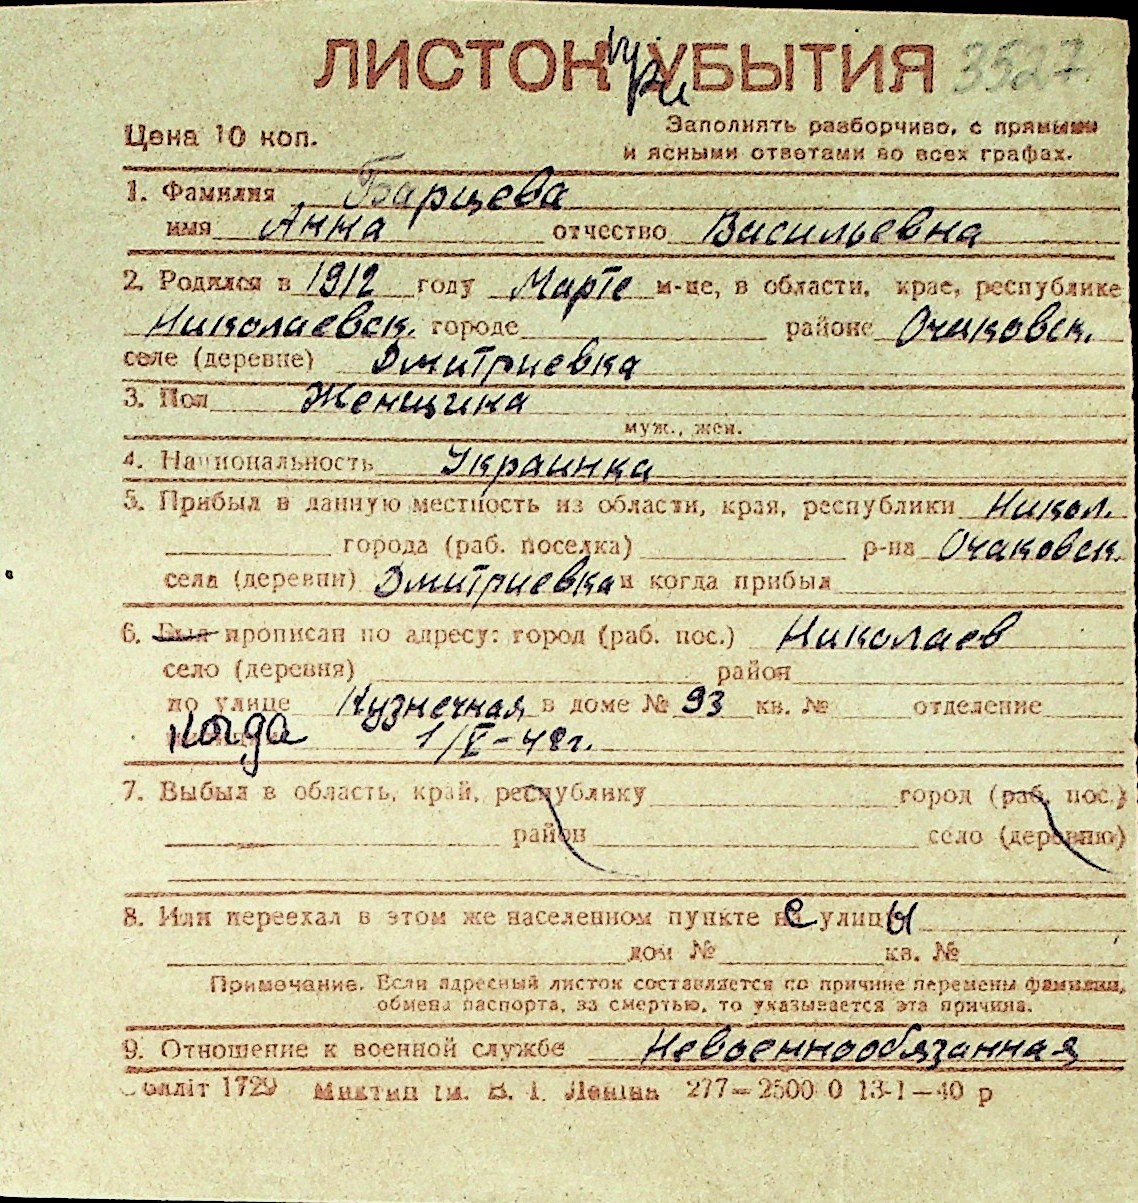 ЛИСТОК УБЫТИЯ при 3527
Цена 10 коп.
Заполнять разборчиво, с прямыми
и ясными ответами во всех графах.
1. Фамилия Барцева
имя Анна отчество Васильевна
2. Родился в 1912 году Марте м-це, в области, крае, республике
Николаевск. городе районе Очаковск.
селе (деревне) Дмитриевка
3. Пол Женщина
муж., жен.
4. Национальность Украинка
5. Прибыл в данную местность из области, края, республики Никол.
города (раб. поселка) р-на Очаковск.
села (деревни) Дмитриевка и когда прибыл
6. Был прописан по адресу: город (раб. пос.) Николаев
село (деревня) район
по улице Кузнечная в доме № 93 кв. № отделение
когда 1/V-42г.
7. Выбыл в область, край, республику город (раб. пос.)
район село (деревню)
8. Или переехал в этом же населенном пункте с улицы
дом № кв. №
Примечание. Если адресный листок составляется по причине перемены фамилии,
обмена паспорта, за смертью, то указывается эта причина.
9. Отношение к военной службе Невоеннообязанная
1729 ім. В. І. Леніна 277—2500 0 13-1—40 р